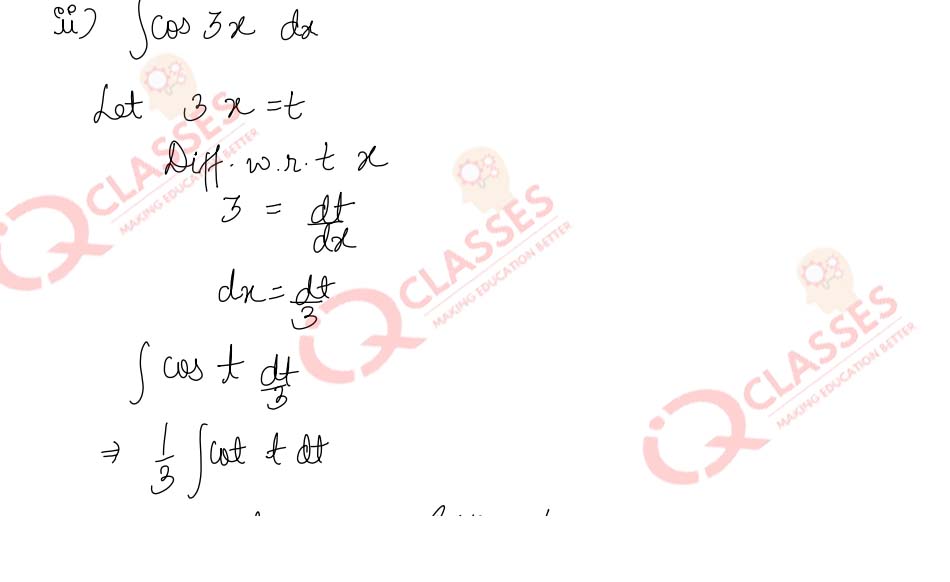 ii) ∫cos 3x dx
Let 3x = t
Diff. w.r.t x
3 = dt/dx
dx = dt/3
∫ cos t dt/3
⇒ 1/3 ∫cot t dt
IQ CLASSES
MAKING EDUCATION BETTER
IQ CLASSES
MAKING EDUCATION BETTER
IQ CLASSES
MAKING EDUCATION BETTER